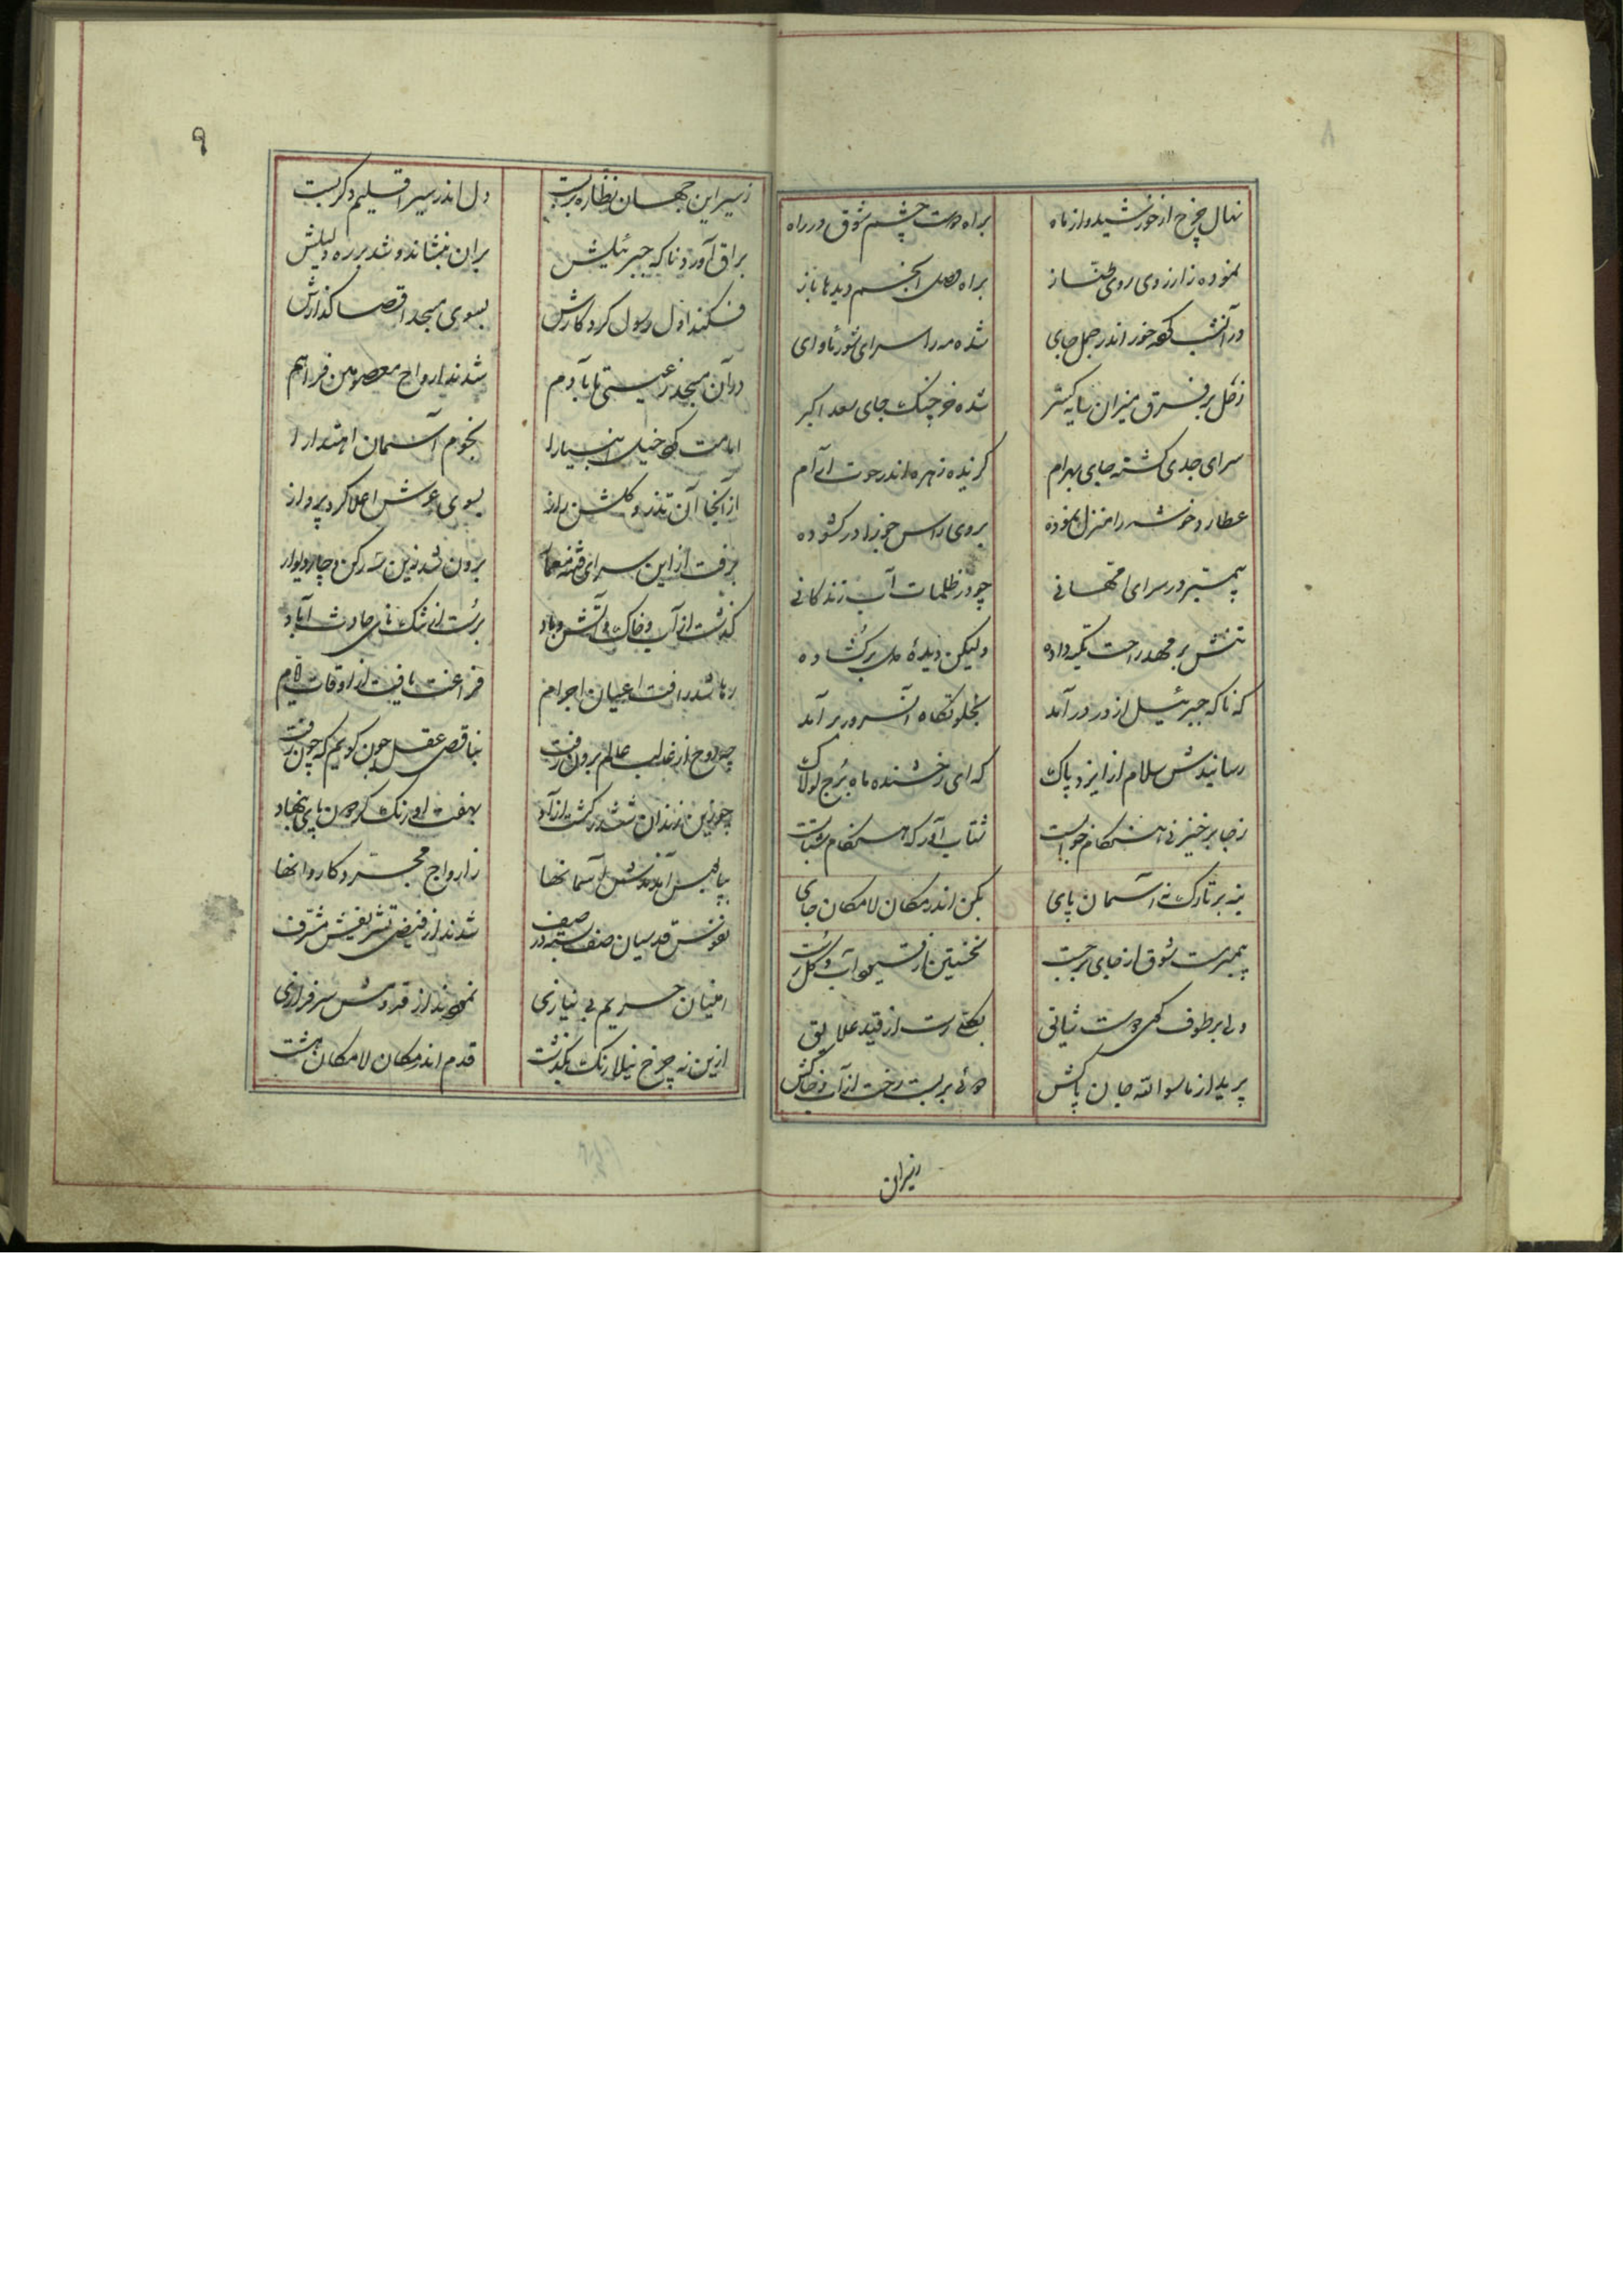 ۸
نهال چرخ از خورشید و از ماه
براه دوست چشم شوق در راه
نموده ز ارزوی روی
براه وصل انجم دیدها باز
در آنشب کرده خور اندر حمل جای
شده مه را سرای ثور ماوای
زحل بر فرق میزان سایه کستر
شده خرچنک جای سعد اکبر
سرای جدی کشته جای بهرام
کزیده زهره اندر حوت آرام
عطارد خوشه را منزل نموده
بروی راس جوزا در کشوده
پیمبر در سرای امهانی
چو در ظلمات آب زندکانی
تنش بر مهد راحت تکیه داده
ولیکن دیدهٔ دل برکشاده
که ناکه جبرئیل از در درآمد
بخلوتکاه آنسرور برآمد
رسانیدش سلام از ایزد پاک
که ای رخشنده ماه برج لولاک
زجا برخیز نی هنکام خوابست
شتاب آور که هنکام شتابست
بنه بر تارک نه آسمان پای
بکن اندر مکان لامکان جای
پیمبر مست شوق از جای برجست
نخستین از قیود آب و کل رست
دلی بر طوف کوی دوست شایق
بکلی رست از قید علایق
پرید از ماسوا الله جان پاکش
بربست رخت از آب و خاکش
زسیر این جهان نظاره بربست
دل اندر سیر اقلیم دکر بست
براق آورد ناکه جبرئیلش
بران بنشاند و شد بر ره دلیلش
فکند اول رسول کردکارش
بسوی مسجد اقصا کذارش
در آن مسجد ز عیسی تا بآدم
شدند ارواح معصومین فراهم
امامت کرد خیل انبیا را
نجوم آسمان اهتدا را
از آنجا آن تذرو کلشن راز
بسوی عرش اعلا کرد پرواز
برفت از این سرای
برون شد زین سه رکن و چار دیوار
کذشت از آب و خاک و آتش و باد
برست از تنکنای حادث آباد
رها شد ز افت اعیان و اجرام
فراغت یافت از اوقات و ایام
چو روح از قالب عالم برون رفت
بناقص عقل چون کویم که چون رفت
چو زین زندان ششدر کشت آزاد
بهفت اورنک کردون پای بنهاد
بپابوس آمدندش ز آسمانها
ز ارواح مجرد کاروانها
نفوس قدسیان صف بسته در صف
شدند از فیض تشریفش مشرف
امینان حریم بی نیازی
نمودند از قدومش سرفرازی
ازین نه چرخ نیلارنک بکذشت
قدم اندر مکان لامکان هشت
۹